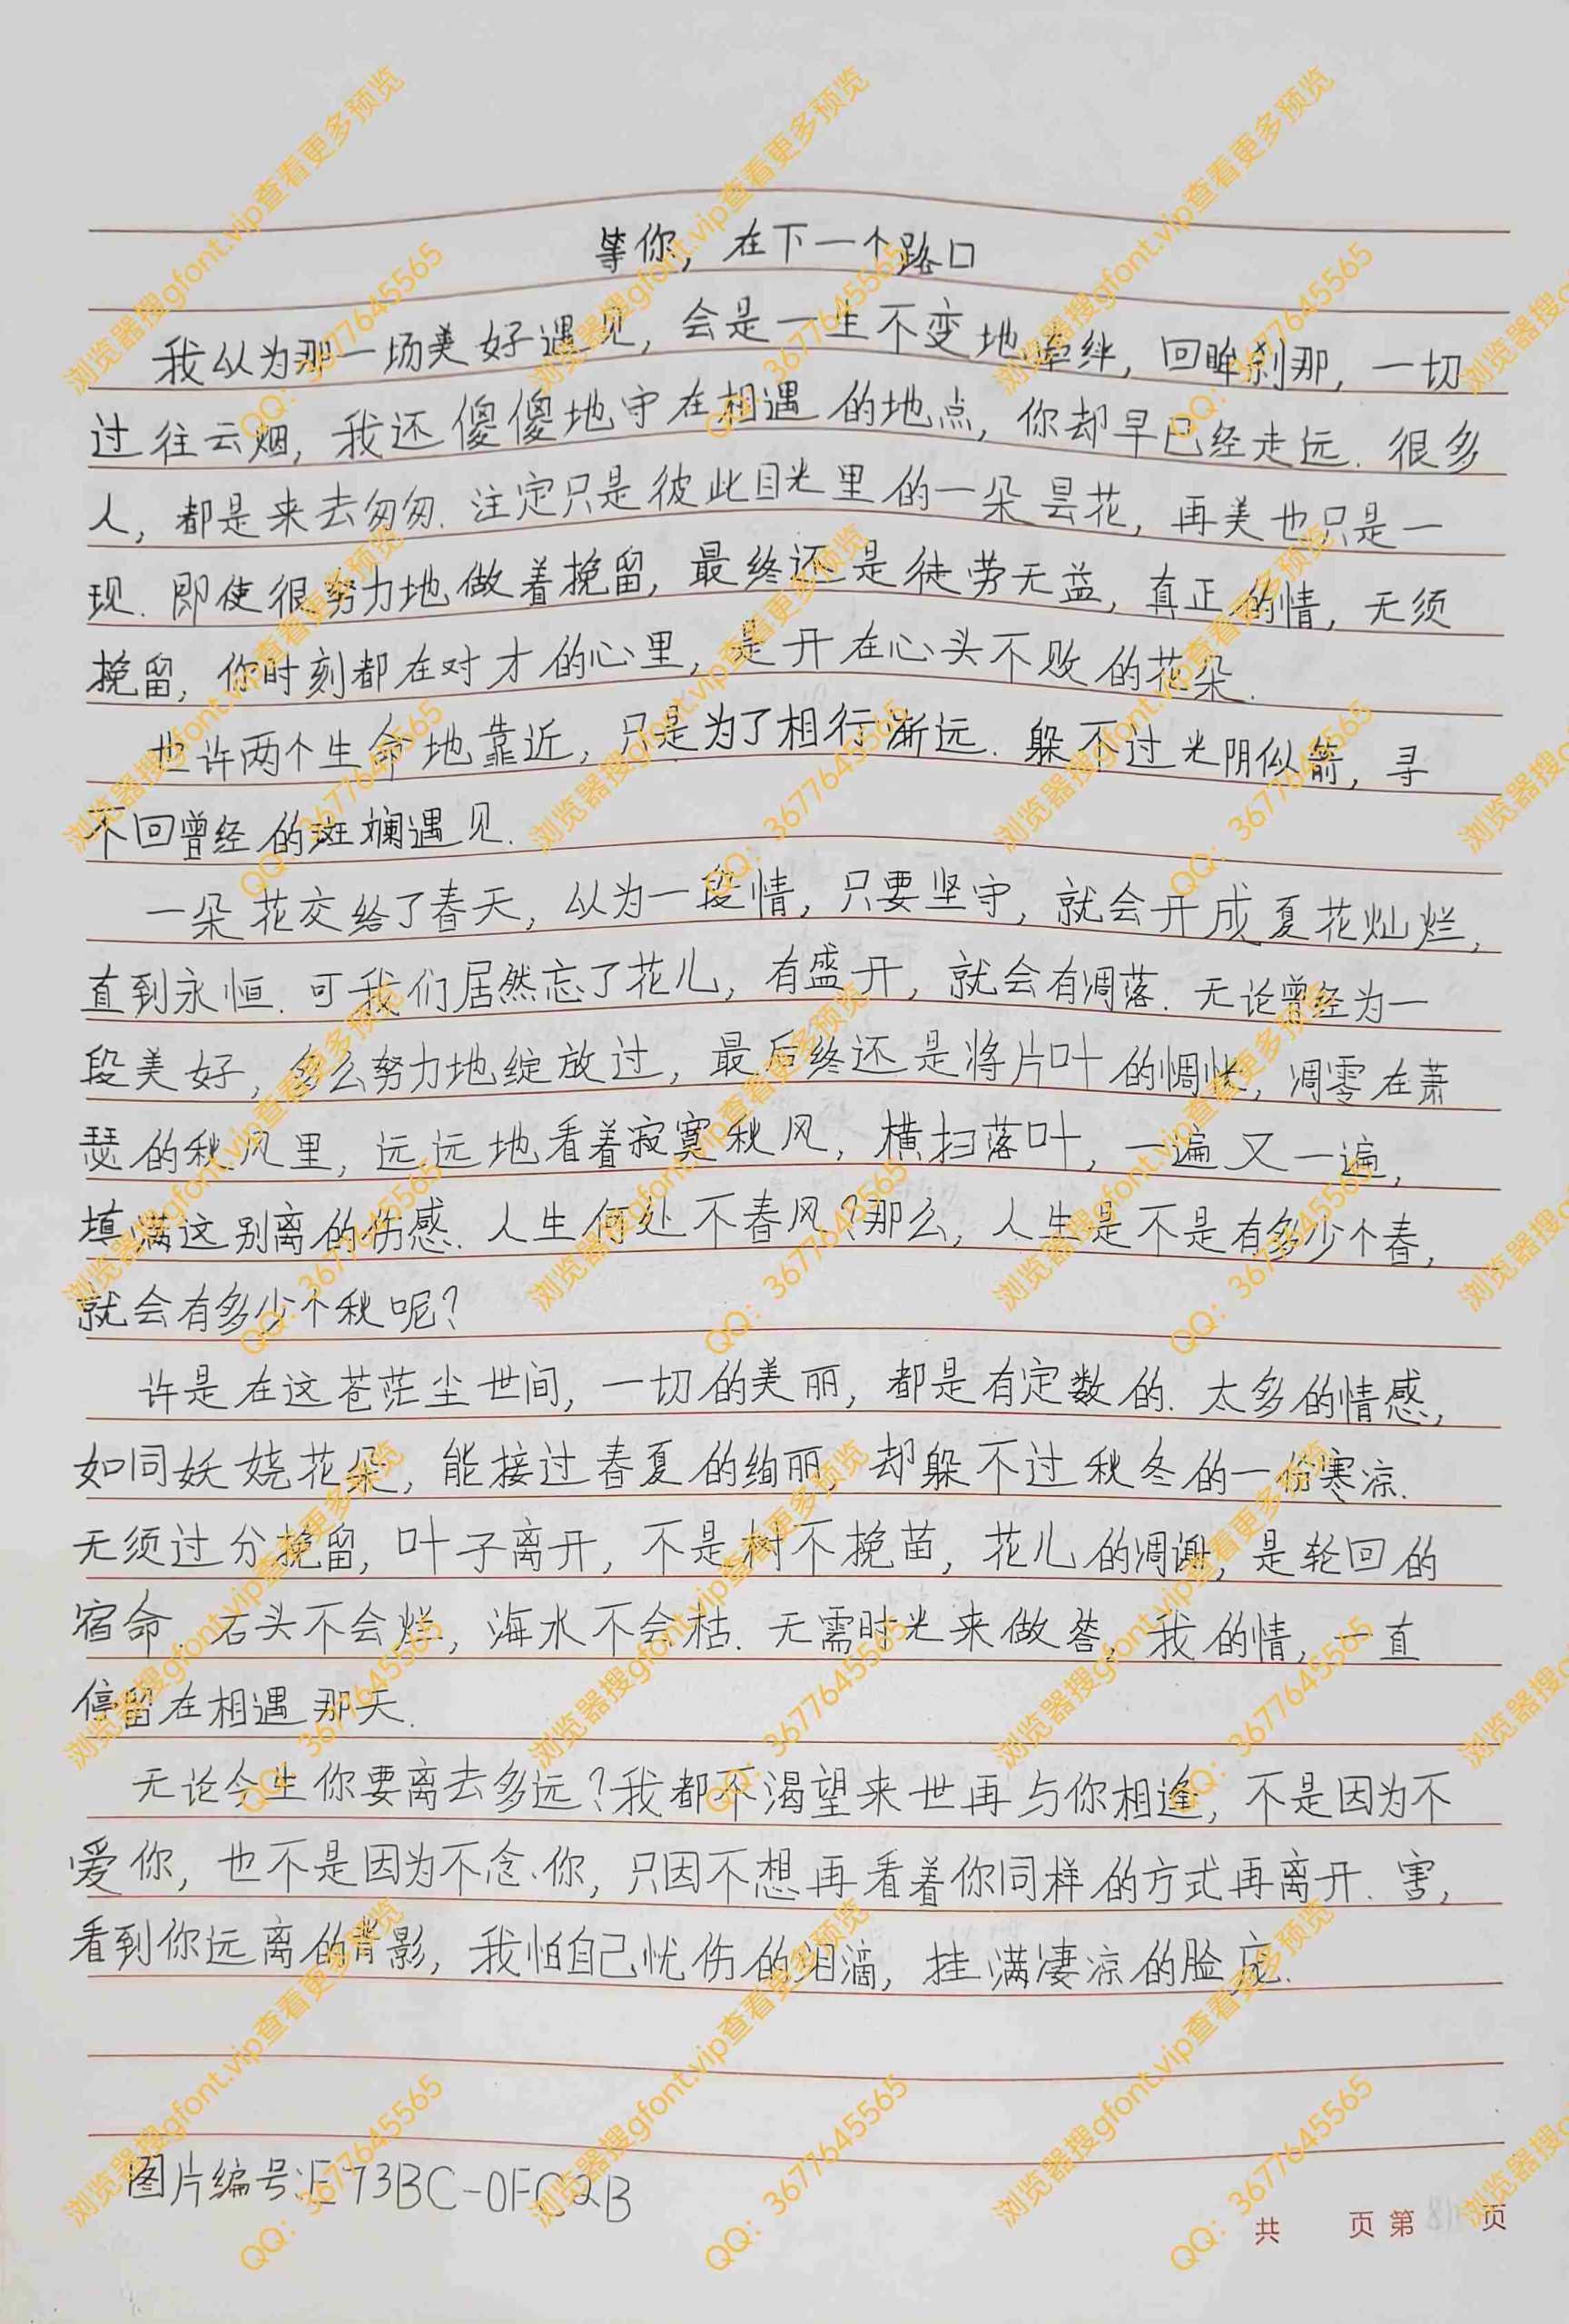 等你，在下一个路口
我以为那一场美好遇见，会是一生不变地牵绊，回眸刹那，一切
过往云烟，我还傻傻地守在相遇的地点，你却早已经走远．很多
人，都是来去匆匆．注定只是彼此目光里的一朵昙花，再美也只是一
现．即使很努力地做着挽留，最终还是徒劳无益，真正的情，无须
挽留，你时刻都在对才的心里，是开在心头不败的花朵．
也许两个生命地靠近，只是为了相行渐远．躲不过光阴似箭，寻
不回曾经的斑斓遇见．
一朵花交给了春天，以为一段情，只要坚守，就会开成夏花灿烂，
直到永恒．可我们居然忘了花儿，有盛开，就会有凋落．无论曾经为一
段美好，多么努力地绽放过，最后终还是将片叶的惆怅，凋零在萧
瑟的秋风里，远远地看着寂寞秋风，横扫落叶，一遍又一遍，
填满这别离的伤感．人生何处不春风？那么，人生是不是有多少个春，
就会有多少个秋呢？
许是在这苍茫尘世间，一切的美丽，都是有定数的．太多的情感，
如同妖娆花朵，能接过春夏的绚丽，却躲不过秋冬的一份寒凉．
无须过分挽留，叶子离开，不是树不挽苗，花儿的凋谢，是轮回的
宿命．石头不会烂，海水不会枯．无需时光来做答，我的情，一直
停留在相遇那天．
无论今生你要离去多远？我都不渴望来世再与你相逢，不是因为不
爱你，也不是因为不念你，只因不想再看着你同样的方式再离开．害，
看到你远离的背影，我怕自己忧伤的泪滴，挂满凄凉的脸庞．
图片编号：E73BC-0FC2B
共 页 第 页
浏览器搜gfont.vip查看更多预览
QQ：3677645565